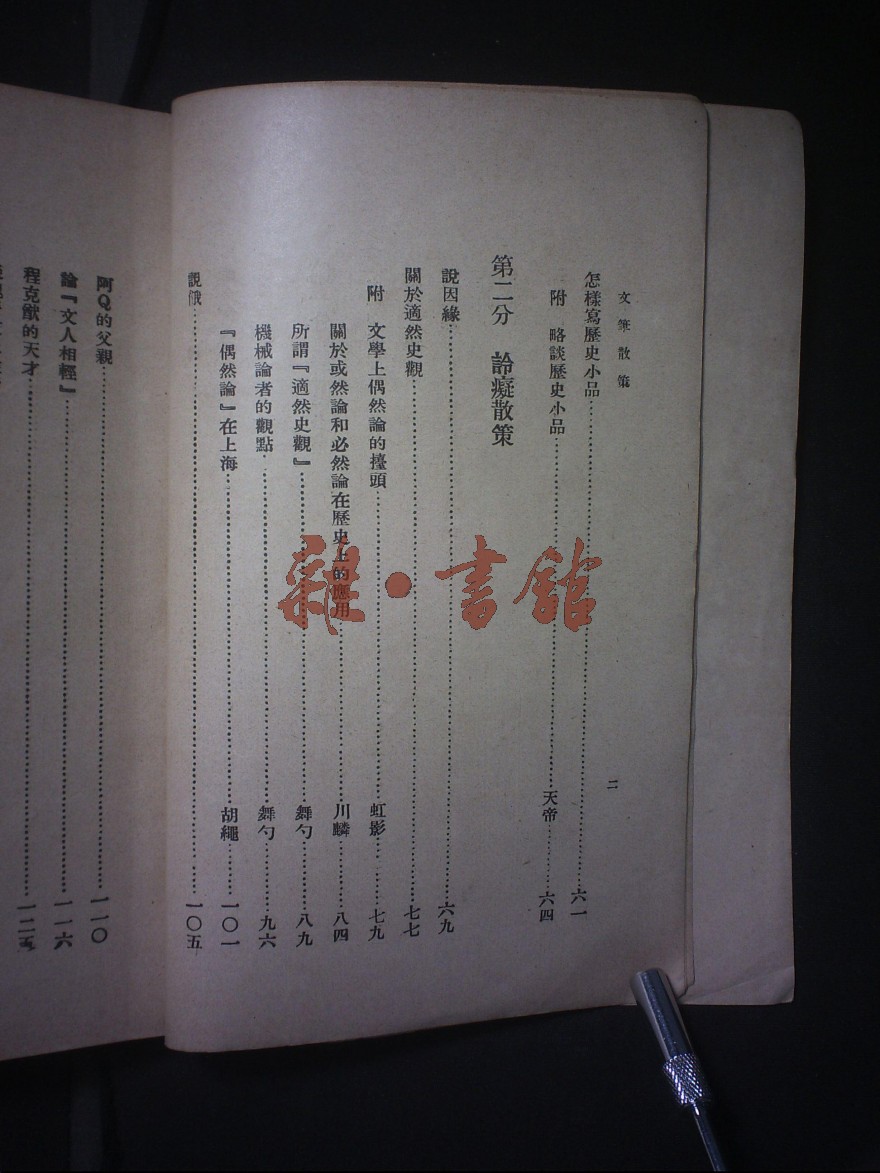 文筆散策
二
怎樣寫歷史小品……六一
附　略談歷史小品……天帝……六四
第二分　詅癡散策
說因緣……六九
關於適然史觀……七七
附　文學上偶然論的擡頭……虹影……七九
關於或然論和必然論在歷史上的應用……川麟……八四
所謂『適然史觀』……舞勺……八九
機械論者的觀點……舞勺……九六
『偶然論』在上海……胡繩……一〇一
說俄……一〇五
阿Q的父親……一一〇
論『文人相輕』……一一六
程克猷的天才……一二五
雜·書館